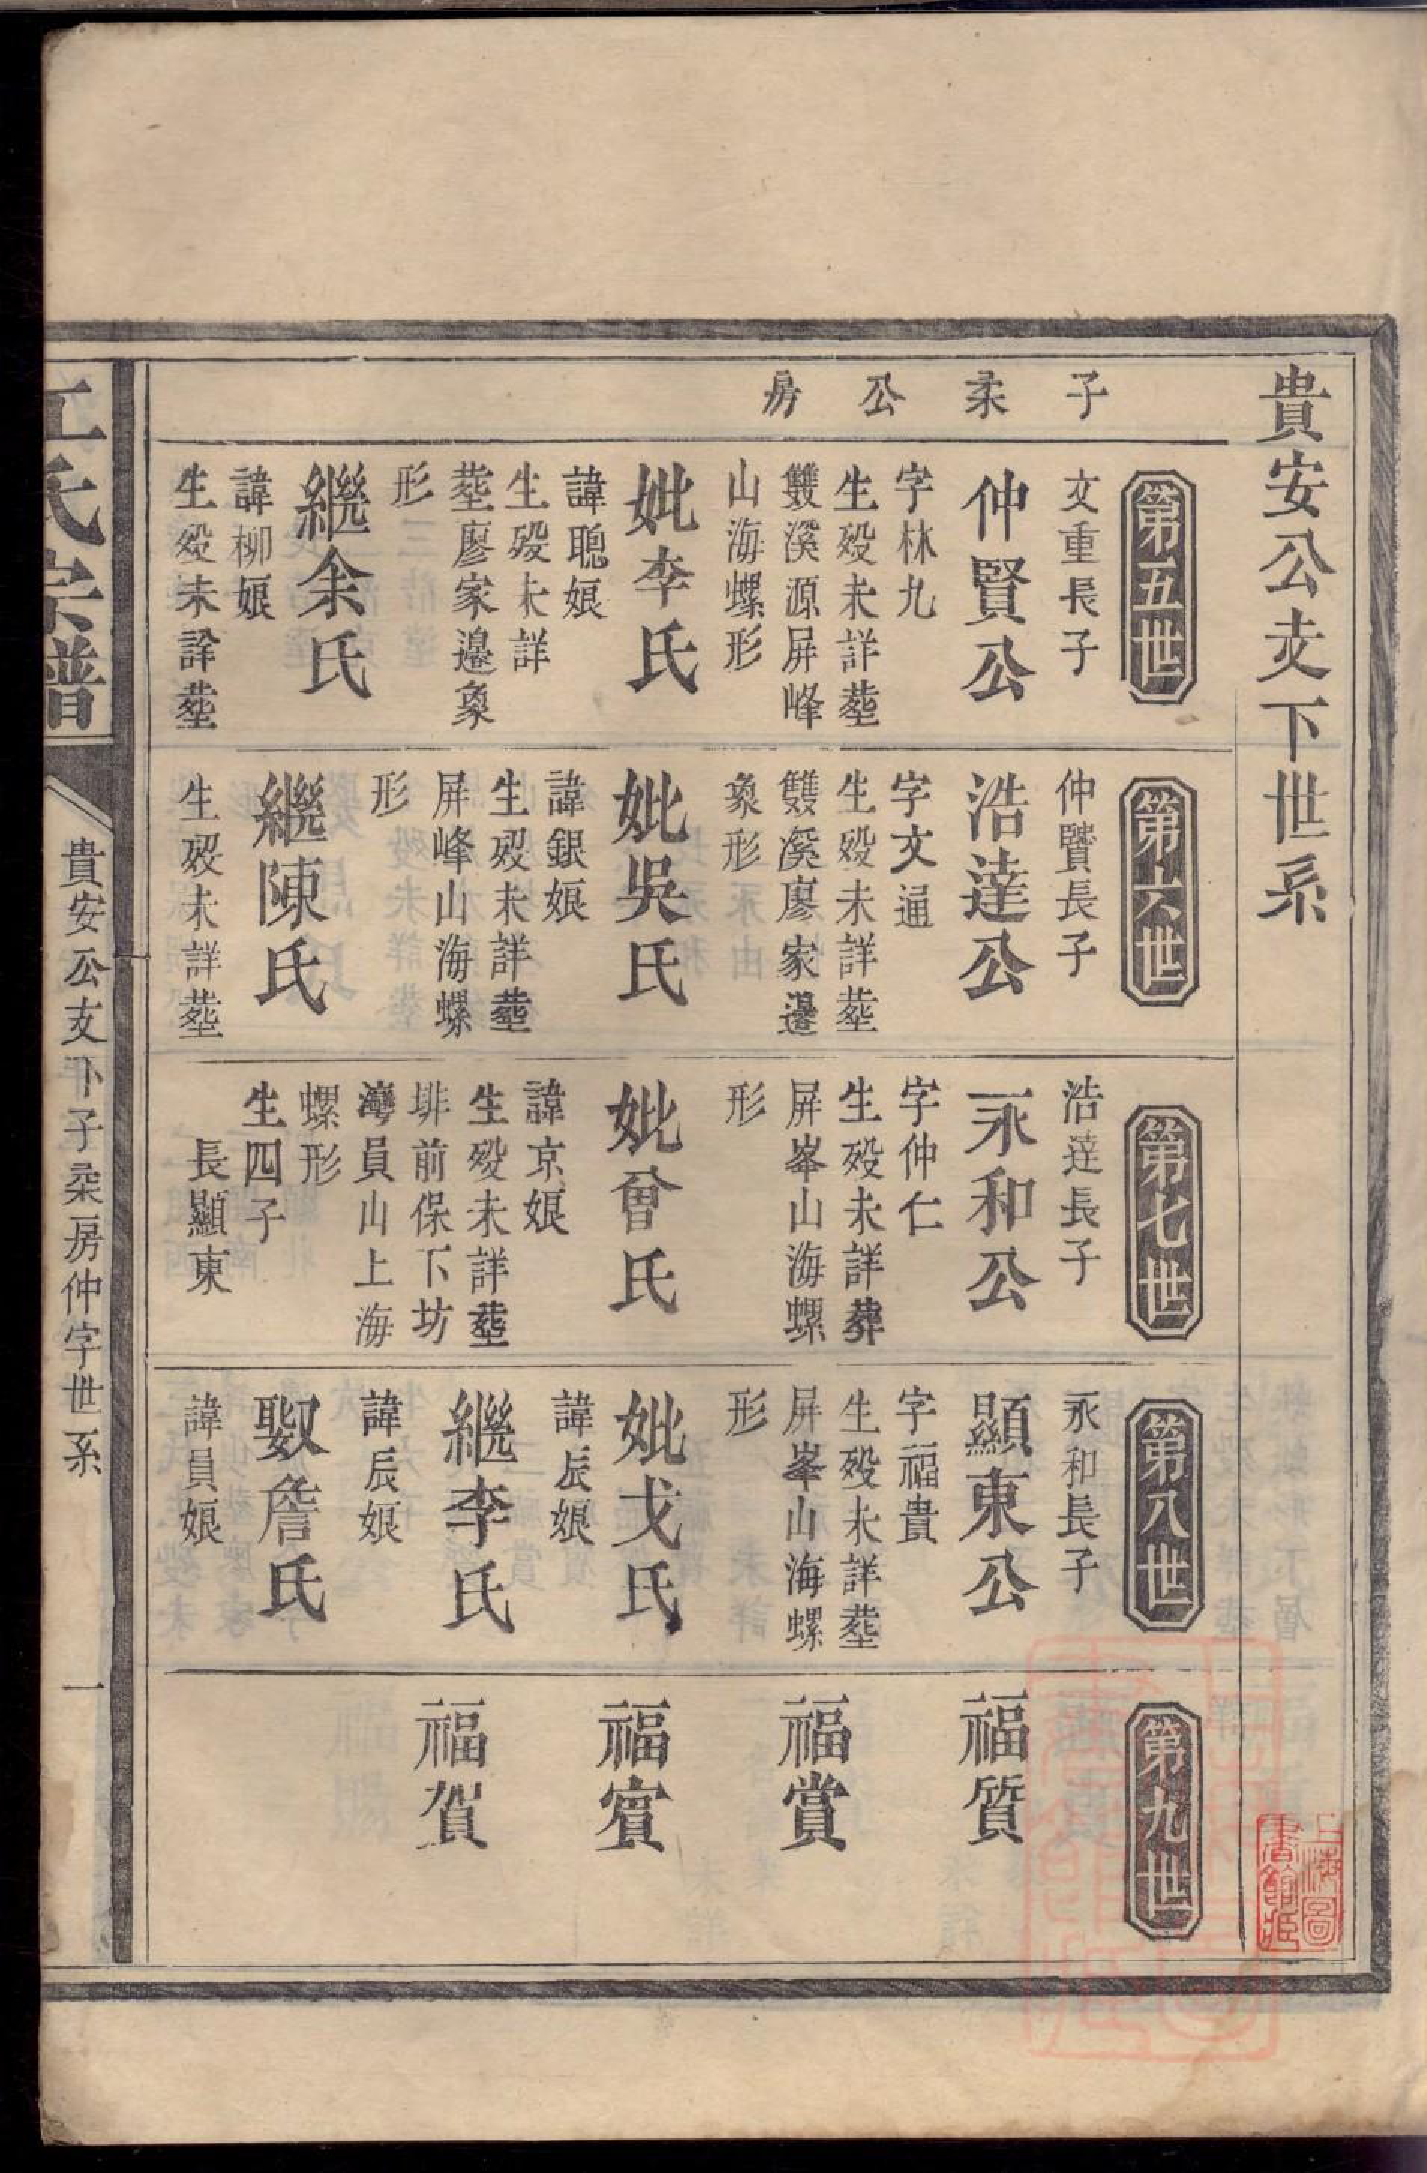 貴安公支下世系
子柔公房
第五世
文重長子
仲賢公
字林九
生殁未詳塟
雙溪源屏峰
山海螺形
妣李氏
諱聰娘
生殁未詳
塟廖家邉象
形
繼余氏
諱柳娘
生殁未詳塟
第六世
仲賢長子
浩達公
字文通
生殁未詳塟
雙溪廖家邉
象形
妣吳氏
諱銀娘
生殁未詳塟
屏峰山海螺
形
繼陳氏
生殁未詳塟
第七世
浩達長子
永和公
字仲仁
生殁未詳葬
屏峯山海螺
形
妣曾氏
諱京娘
生殁未詳塟
排前保下坊
灣員山上海
螺形
生四子
長顯東
第八世
永和長子
顯東公
字福貴
生殁未詳塟
屏峯山海螺
形
妣戈氏
諱辰娘
繼李氏
諱辰娘
娶詹氏
諱員娘
第九世
福質
福賞
福賓
福賀
江氏宗譜
貴安公支下子柔房仲字世系
一
上海圖
書館藏